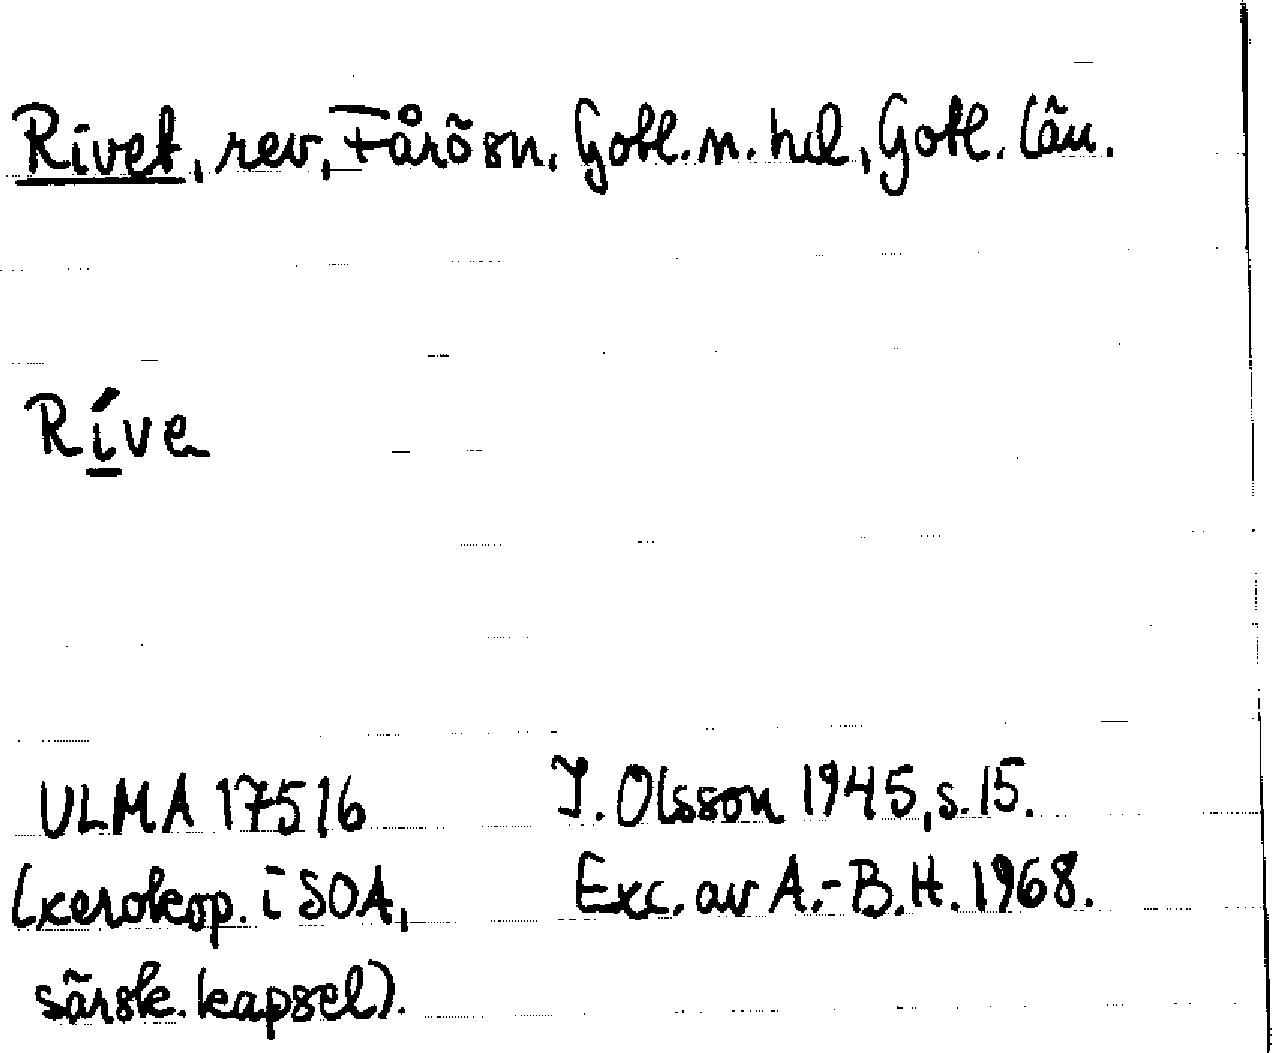 Rivet, rev, Fårö sn, Gotl. n. hd, Gotl. län.
Ríve
ULMA 17516
(xerokop. i SOA,
särsk. kapsel).
I. Olsson 1945, s. 15.
Exc. av A.-B.H. 1968.